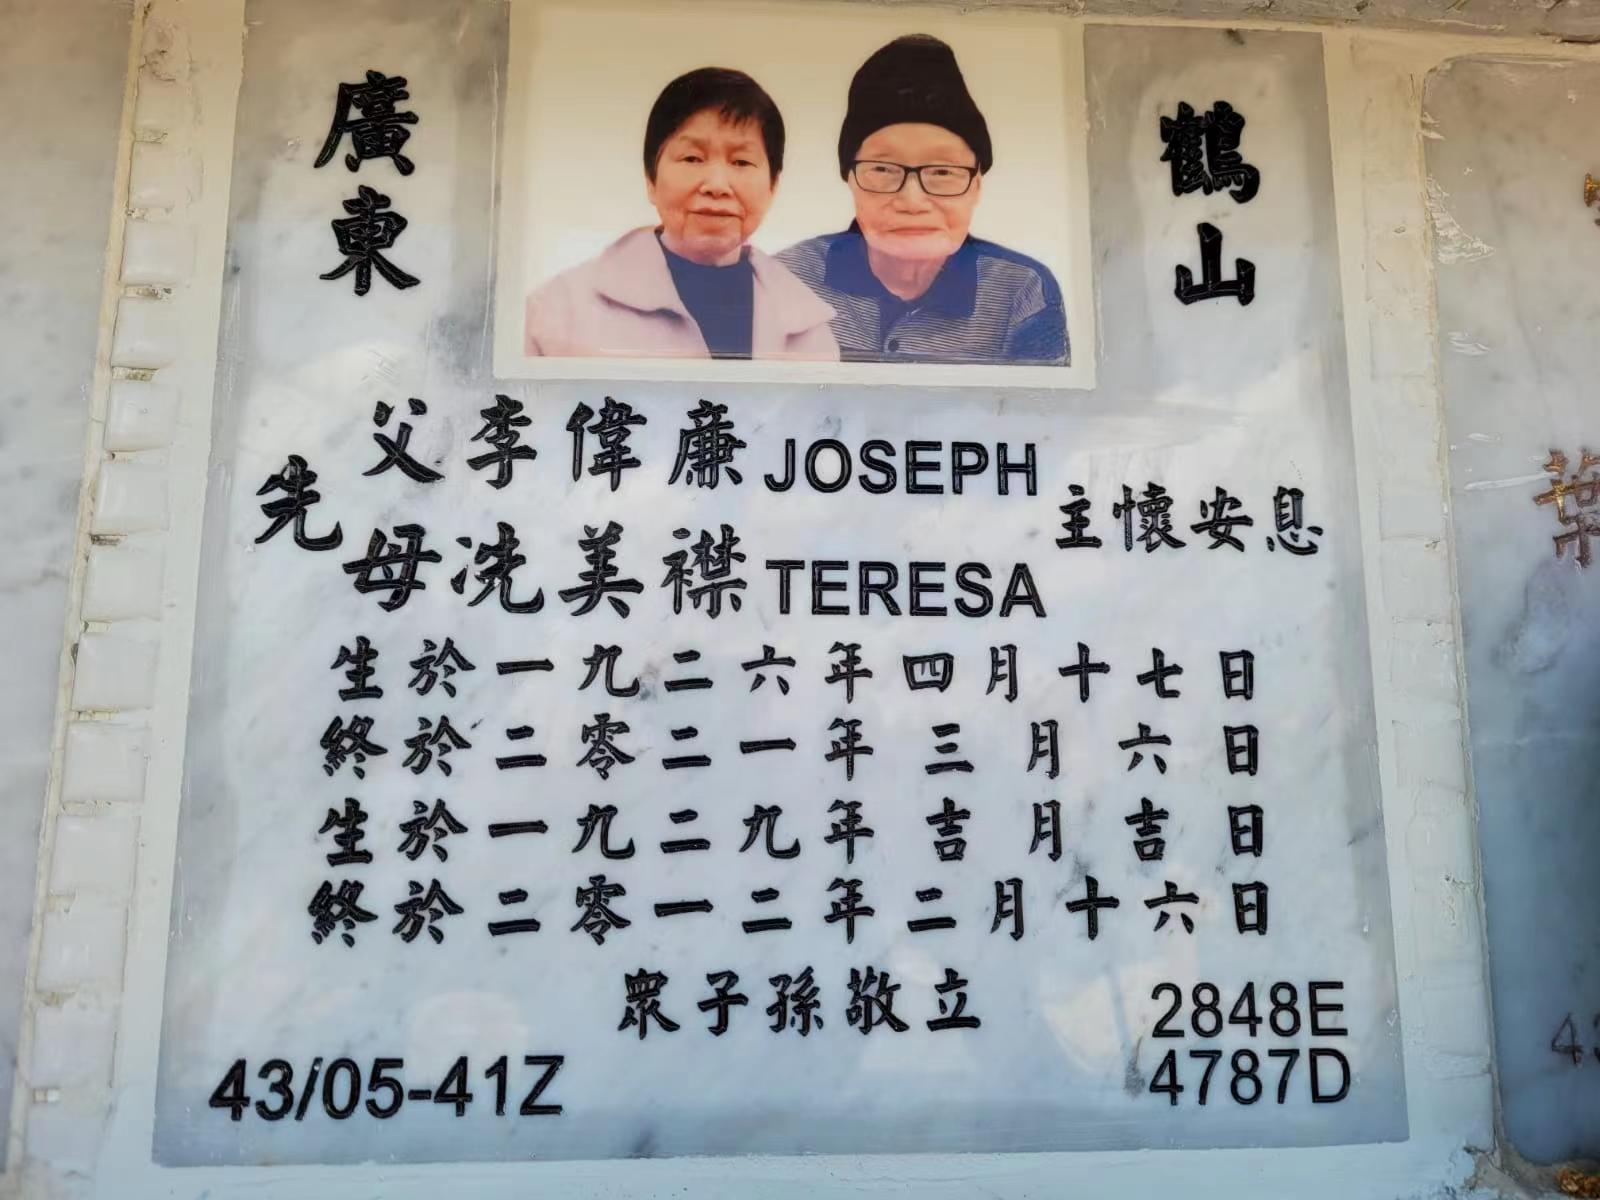 廣東
鶴山
先
父李偉廉 JOSEPH
母冼美襟 TERESA
主懷安息
生於一九二六年四月十七日
終於二零二一年三月六日
生於一九二九年吉月吉日
終於二零一二年二月十六日
眾子孫敬立
2848E
43/05-41Z
4787D
葉